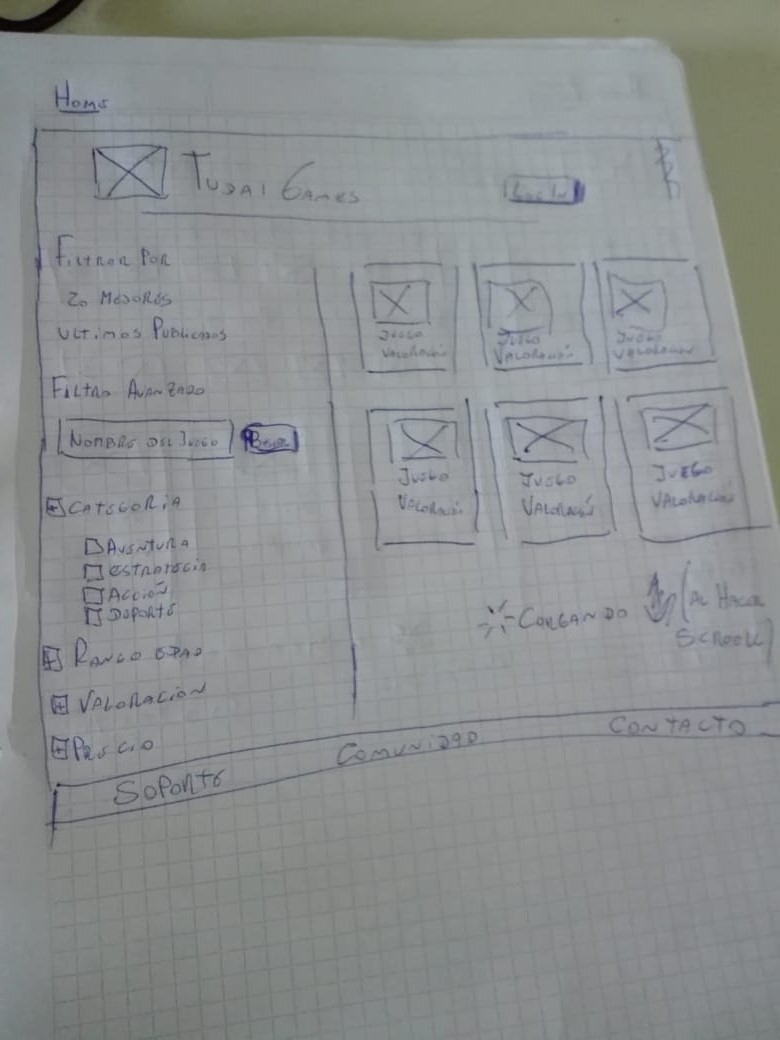 Home
Tudai Games
Log In
Filtrar Por
20 Mejores
Ultimos Publicados
Filtro Avanzado
Nombre del Juego
Buscar
Categoria
Aventura
Estrategia
Acción
Deporte
Rango edad
Valoracion
Precio
Juego
Valoración
Juego
Valoración
Juego
Valoración
Juego
Valoración
Juego
Valoración
Juego
Valoración
Cargando (Al Hacer
Scrool)
Soporte Comunidad Contacto